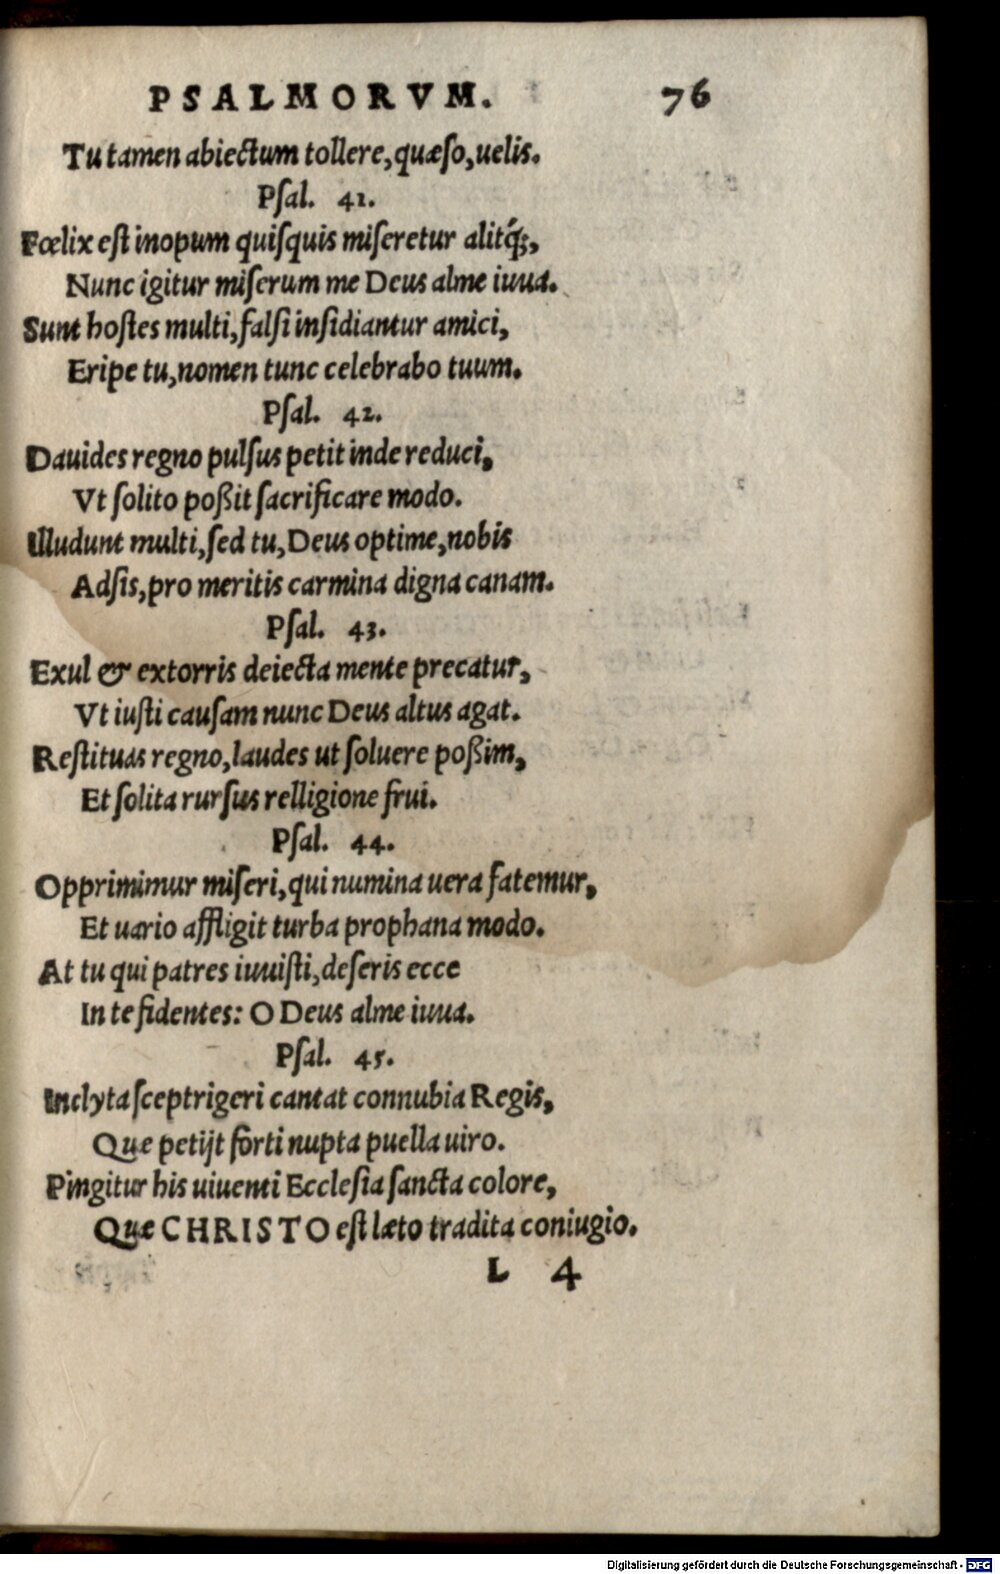 PSALMORVM. 76
Tu tamen abiectum tollere, quæso, uelis.
Psal. 41.
Fœlix est inopum quisquis miseretur alitq́;,
Nunc igitur miserum me Deus alme iuua.
Sunt hostes multi, falsi insidiantur amici,
Eripe tu, nomen tunc celebrabo tuum.
Psal. 42.
Dauides regno pulsus petit inde reduci,
Vt solito poßit sacrificare modo.
Illudunt multi, sed tu, Deus optime, nobis
Adsis, pro meritis carmina digna canam.
Psal. 43.
Exul & extorris deiecta mente precatur,
Vt iusti causam nunc Deus altus agat.
Restituas regno, laudes ut soluere poßim,
Et solita rursus relligione frui.
Psal. 44.
Opprimimur miseri, qui numina uera fatemur,
Et uario affligit turba prophana modo.
At tu qui patres iuuisti, deseris ecce
In te fidentes: O Deus alme iuua.
Psal. 45.
Inclyta sceptrigeri cantat connubia Regis,
Que petijt forti nupta puella uiro.
Pingitur his uiuenti Ecclesia sancta colore,
Quæ CHRISTO est læto tradita coniugio.
L 4
Digitalisierung gefördert durch die Deutsche Forschungsgemeinschaft - DFG